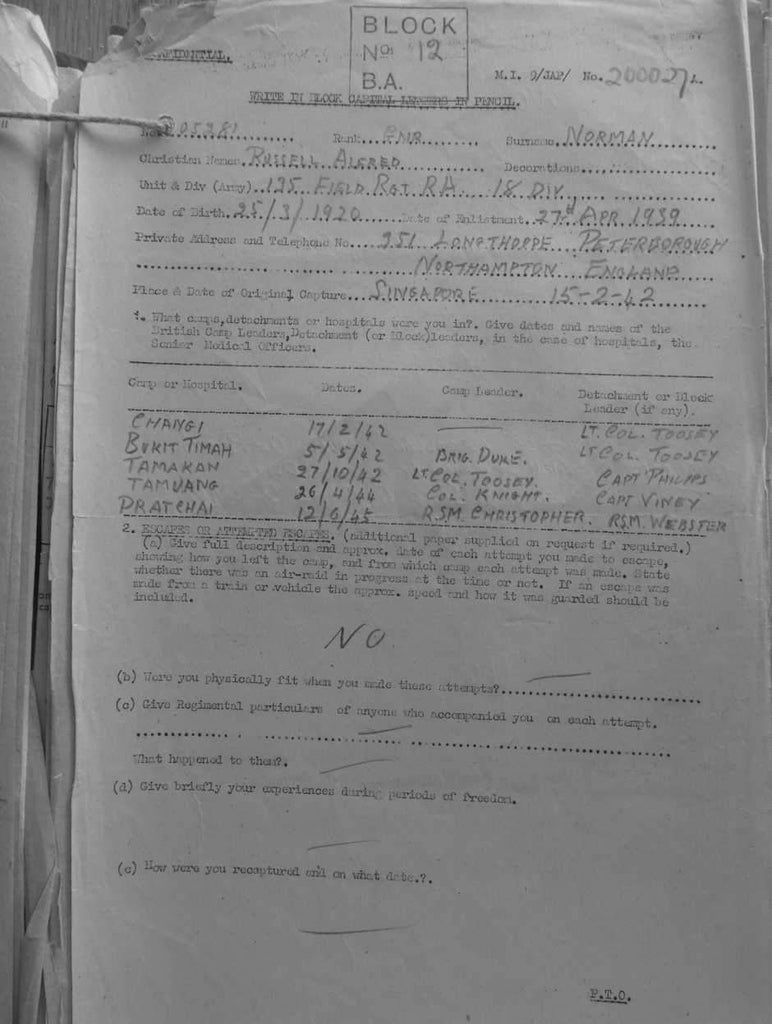 BLOCK
No 12
B.A.
CONFIDENTIAL.
M.I. 9/JAP/ No.
WRITE IN BLOCK CAPITAL LETTERS IN PENCIL.
Rank... GNR Surname. NORMAN
Christian Names. RUSSELL ALFRED Decorations
Unit & Div (Army). 135 FIELD RGT. RA. 18 DIV.
Date of Birth. 25/3/1920 Date of Enlistment. 27th APR 1939
Private Address and Telephone No. 351 LONGTHORPE PETERBOROUGH
NORTHAMPTON ENGLAND
Place & Date of Original Capture. SINGAPORE 15-2-42
1. What camps,detachments or hospitals were you in?. Give dates and names of the
British Camp Leaders,Detachment (or Block)leaders, in the case of hospitals, the
Senior Medical Officers.
Camp or Hospital. Dates. Camp Leader. Detachment or Block
Leader (if any).
CHANGI 17/2/42 — LT. COL. TOOSEY
BUKIT TIMAH 5/5/42 BRIG. DUKE. LT COL. TOOSEY
TAMAKAN 27/10/42 LT COL. TOOSEY. CAPT PHILIPPS
TAMUANG 26/4/44 COL. KNIGHT. CAPT VINEY
PRATCHAI 12/6/45 RSM. CHRISTOPHER. RSM. WEBSTER
2. ESCAPES OR ATTEMPTED ESCAPES. (Additional paper supplied on request if required.)
(a) Give full description and approx. date of each attempt you made to escape,
showing how you left the camp, and from which camp each attempt was made. State
whether there was an air-raid in progress at the time or not. If an escape was
made from a train or vehicle the approx. speed and how it was guarded should be
included.
NO
(b) Were you physically fit when you made these attempts?
(c) Give Regimental particulars of anyone who accompanied you on each attempt.
What happened to them?.
(d) Give briefly your experiences during periods of freedom.
(e) How were you recaptured and on what date.?.
P.T.O.